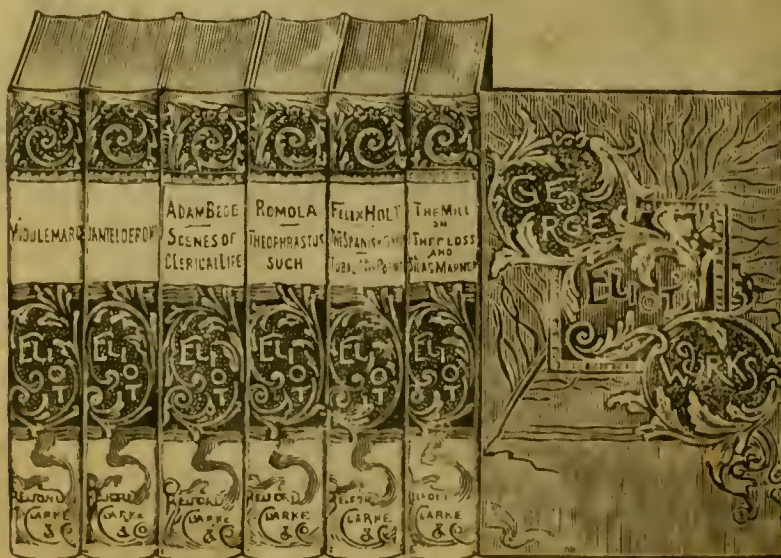 MIDDLEMARC
ELIOT
BELFORD
CLARKE
& CO
DANIEL DERON
ELIOT
BELFORD
CLARKE
& CO
ADAM BEDE
SCENES OF
CLERICAL LIFE
ELIOT
BELFORD
CLARKE
& CO
ROMOLA
THEOPHRASTUS
SUCH
ELIOT
BELFORD
CLARKE
& CO
FELIX HOLT
THE SPANISH
ELIOT
BELFORD
CLARKE
& CO
THE MILL
ON
THE FLOSS
AND
SILAS MARNER
ELIOT
BELFORD
CLARKE
& CO
GEO
RGE
ELIOT'S
WORKS